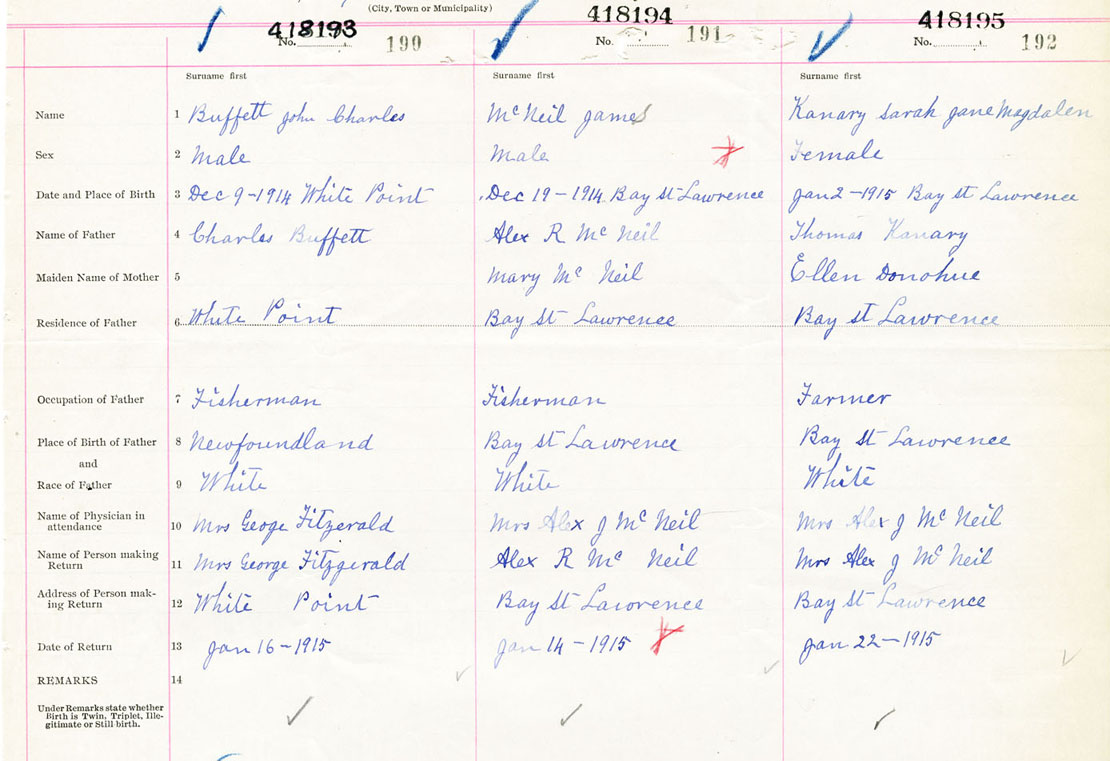 (City, Town or Municipality)
418193 418194 418195
No. 190 No. 191 No. 192
Surname first Surname first Surname first
Name 1 Buffett John Charles McNeil James Kanary Sarah Jane Magdalen
Sex 2 Male Male Female
Date and Place of Birth 3 Dec 9-1914 White Point Dec 19-1914 Bay St Lawrence Jan 2-1915 Bay St Lawrence
Name of Father 4 Charles Buffett Alex R McNeil Thomas Kanary
Maiden Name of Mother 5 Mary Mc Neil Ellen Donohue
Residence of Father 6 White Point Bay St Lawrence Bay St Lawrence
Occupation of Father 7 Fisherman Fisherman Farmer
Place of Birth of Father 8 Newfoundland Bay St Lawrence Bay St Lawrence
and
Race of Father 9 White White White
Name of Physician in
attendance 10 Mrs Geoge Fitzgerald Mrs Alex J Mc Neil Mrs Alex J Mc Neil
Name of Person making
Return 11 Mrs George Fitzgerald Alex R Mc Neil Mrs Alex J Mc Neil
Address of Person mak-
ing Return 12 White Point Bay St Lawrence Bay St Lawrence
Date of Return 13 Jan 16-1915 Jan 14-1915 Jan 22-1915
REMARKS 14
Under Remarks state whether
Birth is Twin, Triplet, Ille-
gitimate or Still birth.